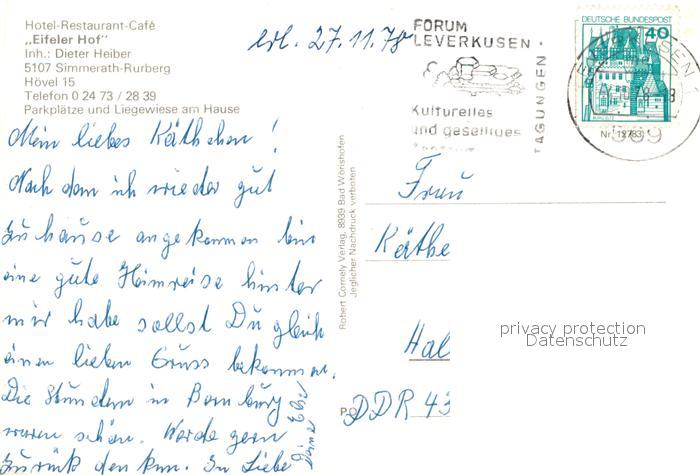 Hotel-Restaurant-Café
„Eifeler Hof"
Inh.: Dieter Heiber
5107 Simmerath-Rurberg
Hövel 15
Telefon 0 24 73 / 28 39
Parkplätze und Liegewiese am Hause
erl. 27.11.78
Mein liebes Käthchen!
Nach dem ich wieder gut
zu hause angekommen bin
eine gute Heimreise hinter
mir habe sollst Du gleich
einen lieben Gruss bekommen.
Die Stunden in Bernburg
waren schön. Werde gern
zurück denken. In Liebe
Deine Else
Robert Cornely Verlag, 8939 Bad Wörishofen
Jeglicher Nachdruck verboten
FORUM
LEVERKUSEN
Kulturelles
und geselliges
TAGUNGEN
DEUTSCHE BUNDESPOST
40
509
Nr. 12783
Frau
Käthe
Hal
DDR 43
privacy protection
Datenschutz